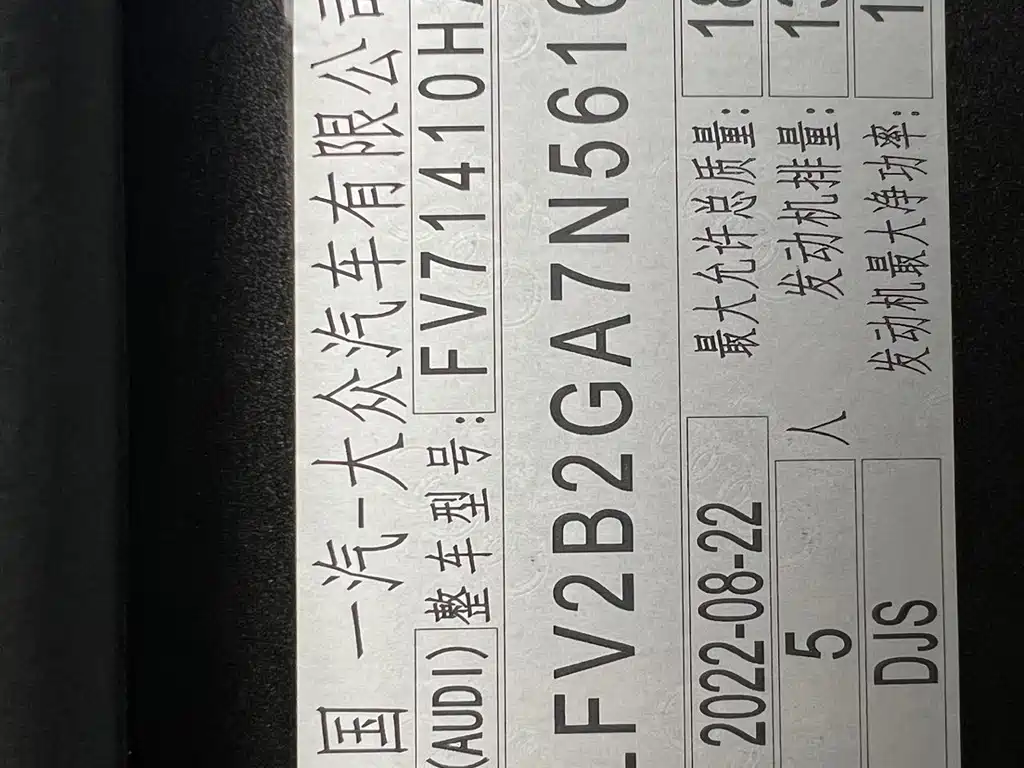 国 一汽-大众汽车有限公司
(AUDI) 整车型号: FV71410H
LFV2B2GA7N5616
2022-08-22 最大允许总质量: 18
5 人 发动机排量: 13
DJS 发动机最大净功率: 1